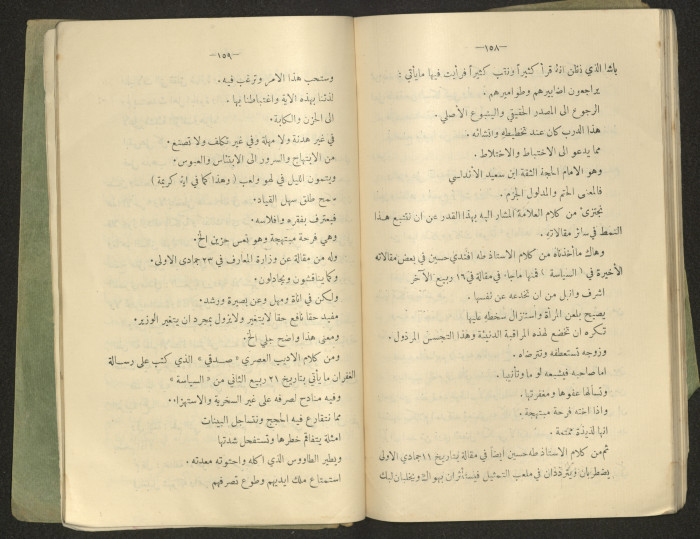 — ١٥٨ —
باشا الذي نظن انه قرأ كثيراً وكتب كثيراً فرأيت فيها مايأتي :
يراجعون اضابيرهم وطواميرهم .
الرجوع الى المصدر الحقيقي والينبوع الأصلي .
هذا الدرب كان عند تخطيطه وانشائه .
مما يدعو الى الاختباط والاختلاط .
وهو الامام الحجة الثقة ابن سعيد الأندلسي
فالمعنى الحتم والمدلول الجزم .
نجتزىء من كلام العلامة المشار اليه بهذا القدر عن ان نتتبع هذا
النمط في سائر مقالاته .
وهاك ما أخذناه من كلام الاستاذ طه افندي حسين في بعض مقالاته
الأخيرة في ( السياسة ) فمنها ماجاء في مقالة في ١٦ ربيع الآخر
اشرف وانبل من ان تخدعه عن نفسها .
يصيح بلعن المرأة واستنزال سخطه عليها
تكره ان تخضع لهذه المراقبة الدنيئة وهذا التجسس المرذول .
وزوجه تستعطفه وتترضاه .
اما صاحبه فيشبعه لوما وتأنيبا .
وتسألها عفوها ومغفرتها .
واذا اخته فرحة مبتهجة .
انها لذيذة ممتعة .
ثم من كلام الاستاذ طه حسين ايضاً في مقالة بتاريخ ١١ جمادى الاولى
يضطربان ويترددان في ملعب التمثيل فيستأثران بهواك ويخلبان لبك
— ١٥٩ —
وستحب هذا الامر وترغب فيه .
لذتنا بهذه الآية واغتباطنا بها .
الى الحزن والكآبة .
في غير هدنة ولا مهلة وفي غير تكلف ولا تصنع .
من الابتهاج والسرور الى الابتئاس والعبوس .
ويتمون الليل في لهو ولعب ( وهذا كما في آية كريمة )
سمح طلق سهل القياد .
فيعترف بفقره وافلاسه .
وهي فرحة مبتهجة وهو بئس حزين الخ .
وله من مقالة عن وزارة المعارف في ٢٣ جمادى الاولى .
وكما يناقشون ويجادلون .
ولكن في اناة ومهل وعن بصيرة ورشد .
مفيد حقا نافع حقا لايتغير ولايزول بمجرد ان يتغير الوزير .
ومعنى هذا واضح جلي الخ .
ومن كلام الاديب العصري « صدقي » الذي كتب على رسالة
الغفران ما يأتي بتاريخ ٢١ ربيع الثاني من « السياسة »
وفيه منادح لصرفه على غير السخرية والاستهزاء .
مما نتقارع فيه الحجج ونتساجل البينات
امثلة يتفاقم خطرها وتستفحل شدتها
ويطير الطاووس الذي اكله واحتوته معدته .
استمتاع ملك ايديهم وطوع تصرفهم